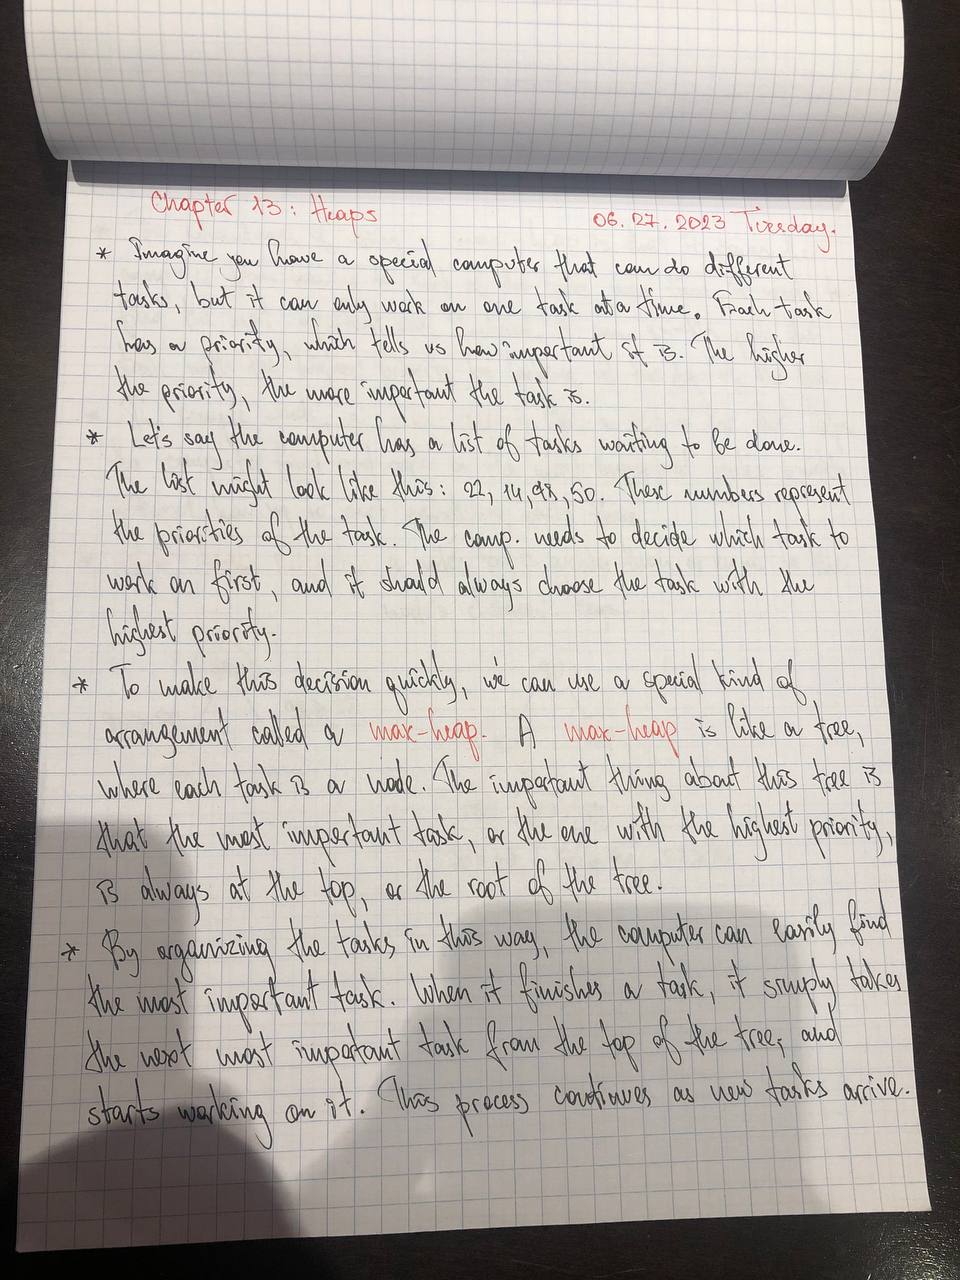 Chapter 13: Heaps
06.27.2023 Tuesday.
* Imagine you have a special computer that can do different
tasks, but it can only work on one task at a time. Each task
has a priority, which tells us how important it is. The higher
the priority, the more important the task is.
* Let's say the computer has a list of tasks waiting to be done.
The list might look like this: 22, 14, 98, 50. These numbers represent
the priorities of the task. The comp. needs to decide which task to
work on first, and it should always choose the task with the
highest priority.
* To make this decision quickly, we can use a special kind of
arrangement called a max-heap. A max-heap is like a tree,
where each task is a node. The important thing about this tree is
that the most important task, or the one with the highest priority,
is always at the top, or the root of the tree.
* By organizing the tasks in this way, the computer can easily find
the most important task. When it finishes a task, it simply takes
the next most important task from the top of the tree, and
starts working on it. This process continues as new tasks arrive.